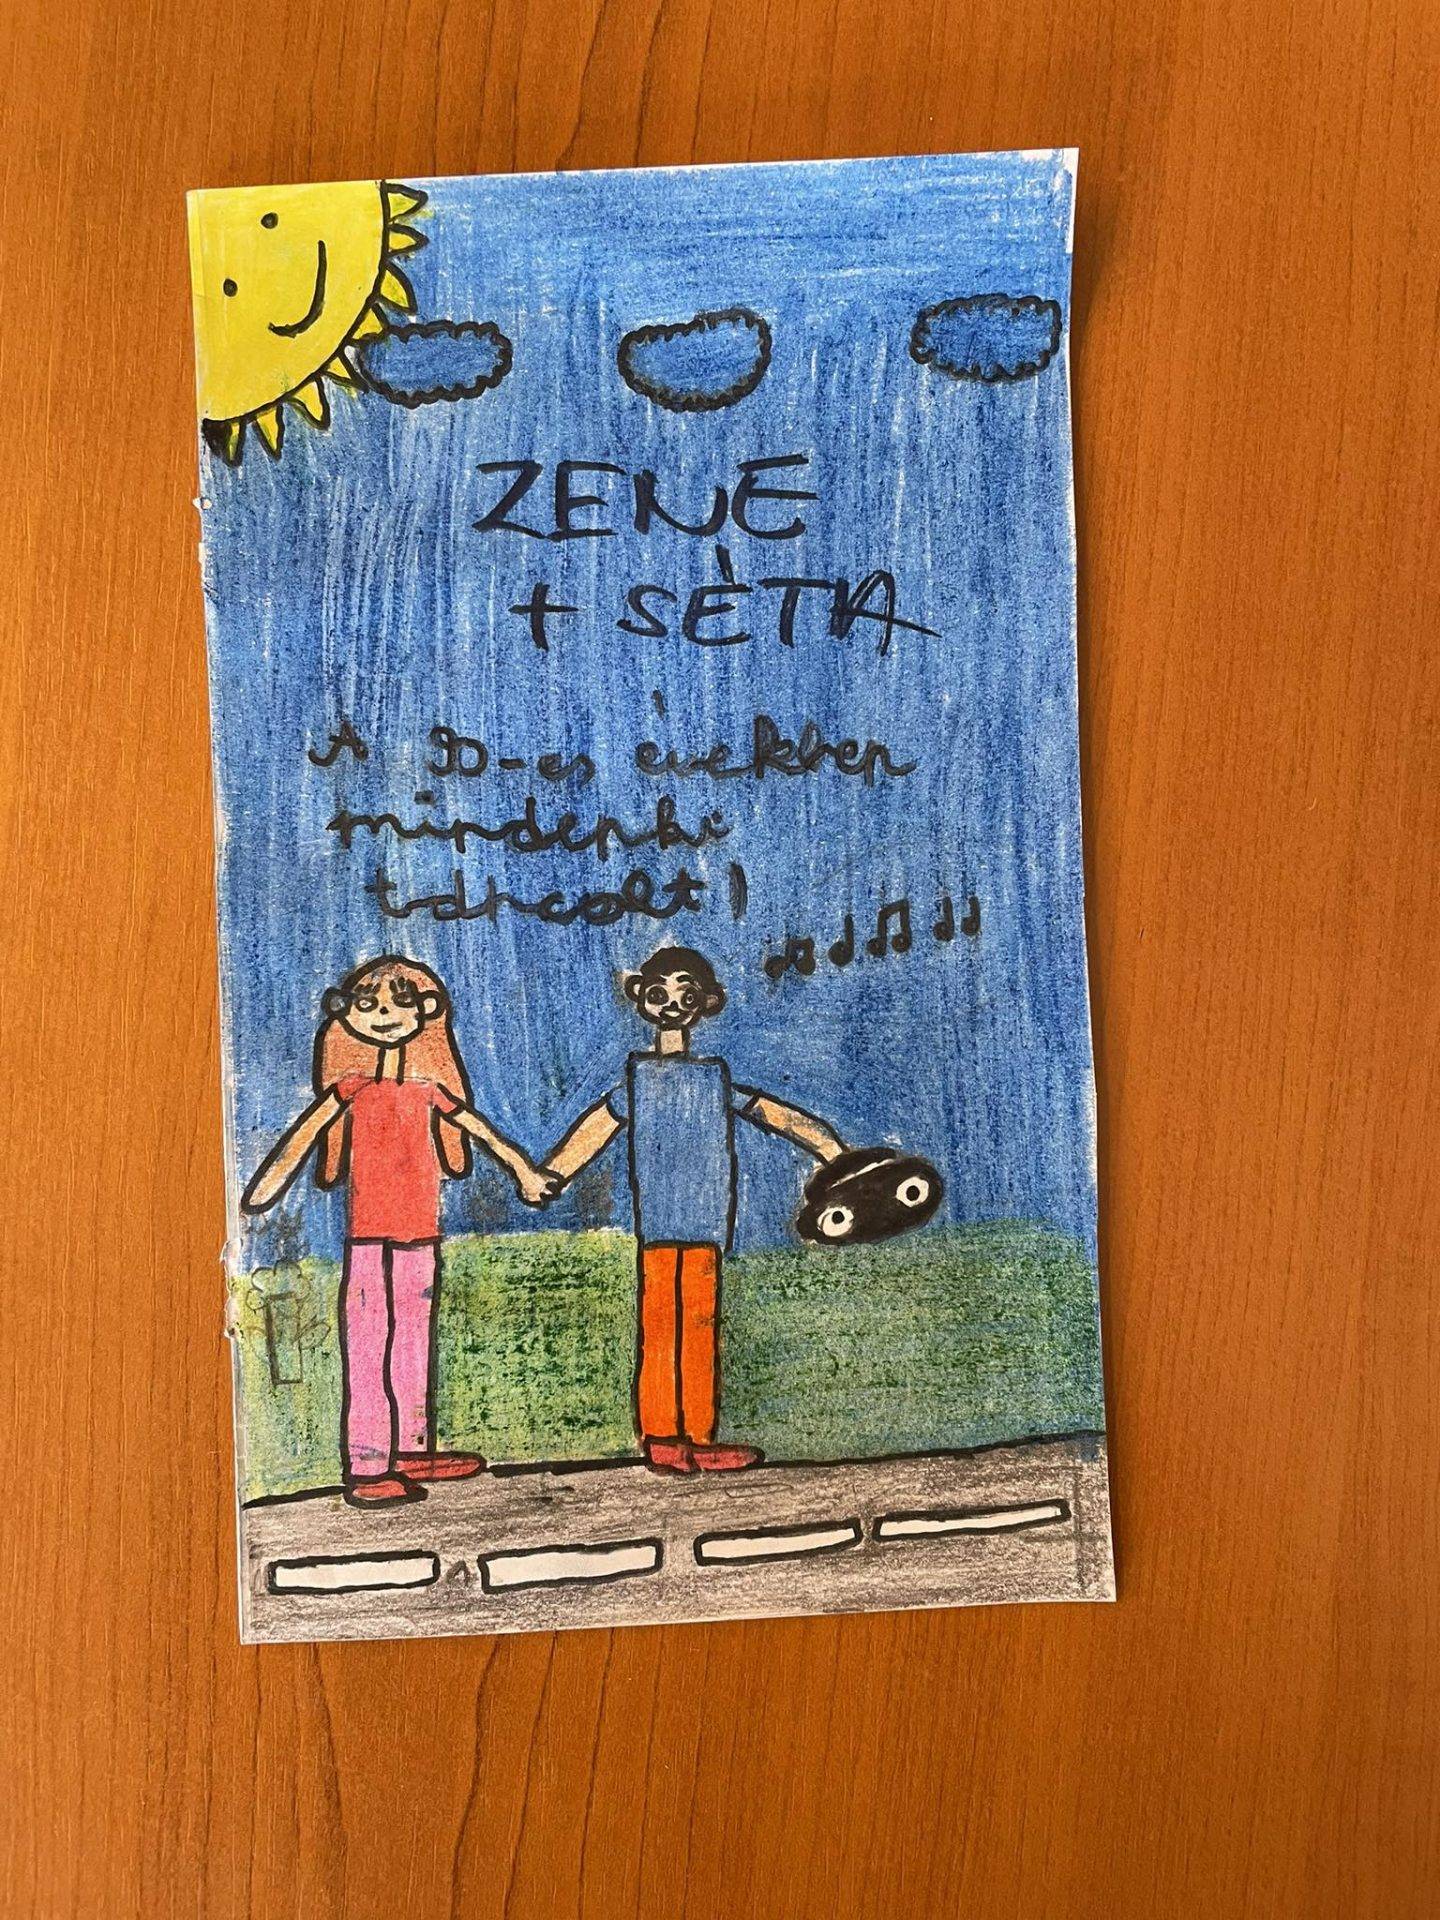 ZENE
+ SÉTA
A 90-es években
mindenki
táncolt!